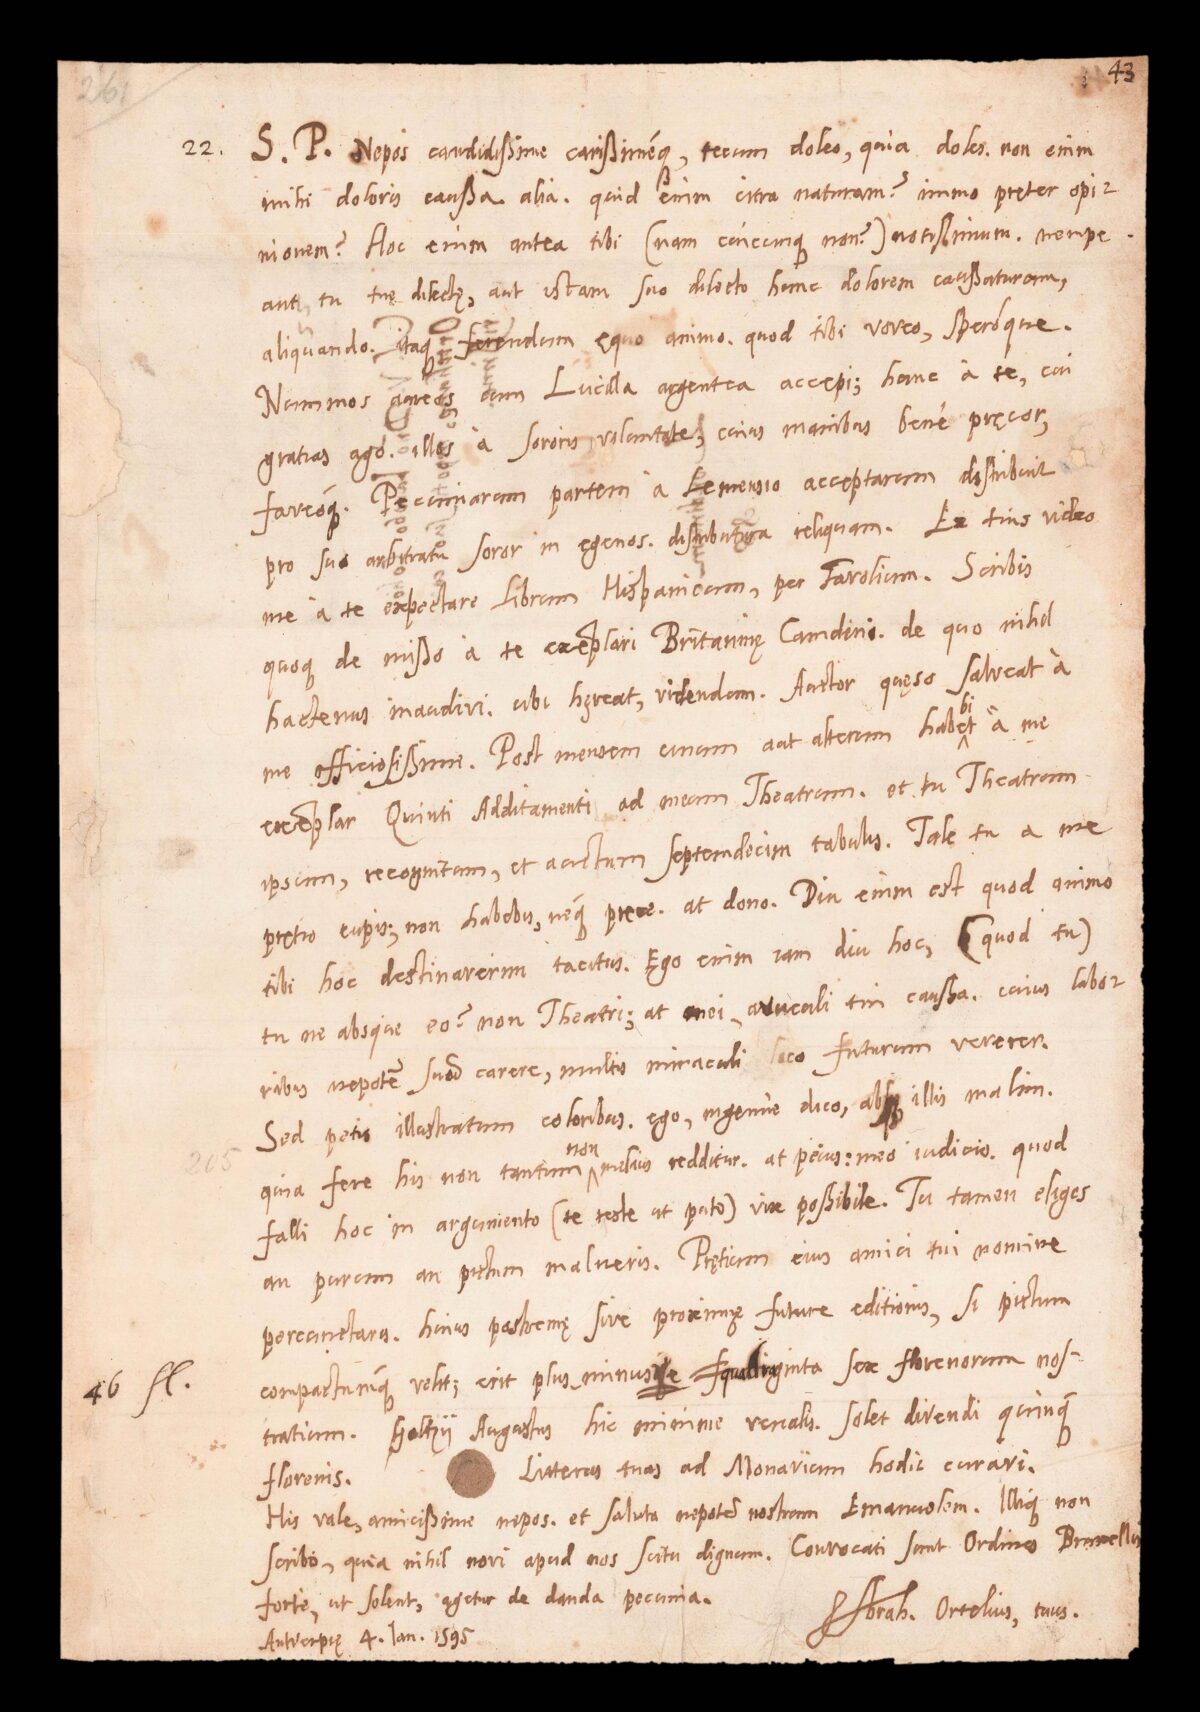 261
43
22. S. P. Nepos candidißime carißiméq, tecum doleo, quia doles. non enim
mihi doloris caußa alia. quid enim citra naturam? immo pręter opi-
nionem? Hoc enim antea tibi (nam cuicunq non?) notißimum. nempe
aut tu tuę dilectę, aut istam suo dilecto hunc dolorem caußaturam,
aliquando. itaq ferendum ęquo animo. quod tibi voveo, speróque.
Nummos aureos cum Lucilla argentea accepi; hanc à te, cui
gratias ago. illos à sororis voluntate, cuius manibus bené pręcor,
faveóq. Pecuniarum partem à Lemensio acceptarum distribuit
pro suo arbitratu soror in egenos. distributura reliquam. Ex tuis video
me à te expectare librum Hispanicum, per Farolium. Scribis
quoq de misso à te exemplari Britannię Camdeni. de quo nihil
hactenus inaudivi. ubi hęreat, videndum. Auctor quęso salveat à
me officiosißime. Post mensem unum aut alterum habebit à me
exemplar Quinti Additamenti ad meum Theatrum. et tu Theatrum
ipsum, recognitum, et auctum septemdecim tabulis. Tale tu a me
prętio cupis; non habebis, neq prece. at dono. Diu enim est quod animo
tibi hoc destinaverim tacitus. Ego enim iam diu hoc, (quod tu)
tu ne absque eo? non Theatri; at mei, avunculi tui caußa. cuius labo-
ribus nepotē suū carere, multis miraculi loco futurum vererer.
Sed petis illustratum coloribus. ego, ingenue dico, absq illis malim.
205
quia fere his non tantum non melius redditur. at peius: meo iudicio. quod
falli hoc in argumento (te teste ut puto) vix poßibile. Tu tamen eliges
an purum an pictum malueris. Prętium eius amici tui nomine
percunctaris. huius postremę sive proximę future editionis, si pictum
46 fl. compactumq velit; erit plus minusve quadraginta sex florenorum nos-
tratium. Goltzij Augustus hic minime venalis. solet divendi quinq
florenis. Litteras tuas ad Monavium hodie curavi.
His vale, amicißime nepos. et saluta nepotē nostrum Emanuelem. Illiq non
scribo, quia nihil novi apud nos scitu dignum. Convocati sunt Ordines Bruxellis
forte, ut solent, agetur de danda pecunia.
Abrah. Ortelius, tuus.
Antverpię 4. Ian. 1595